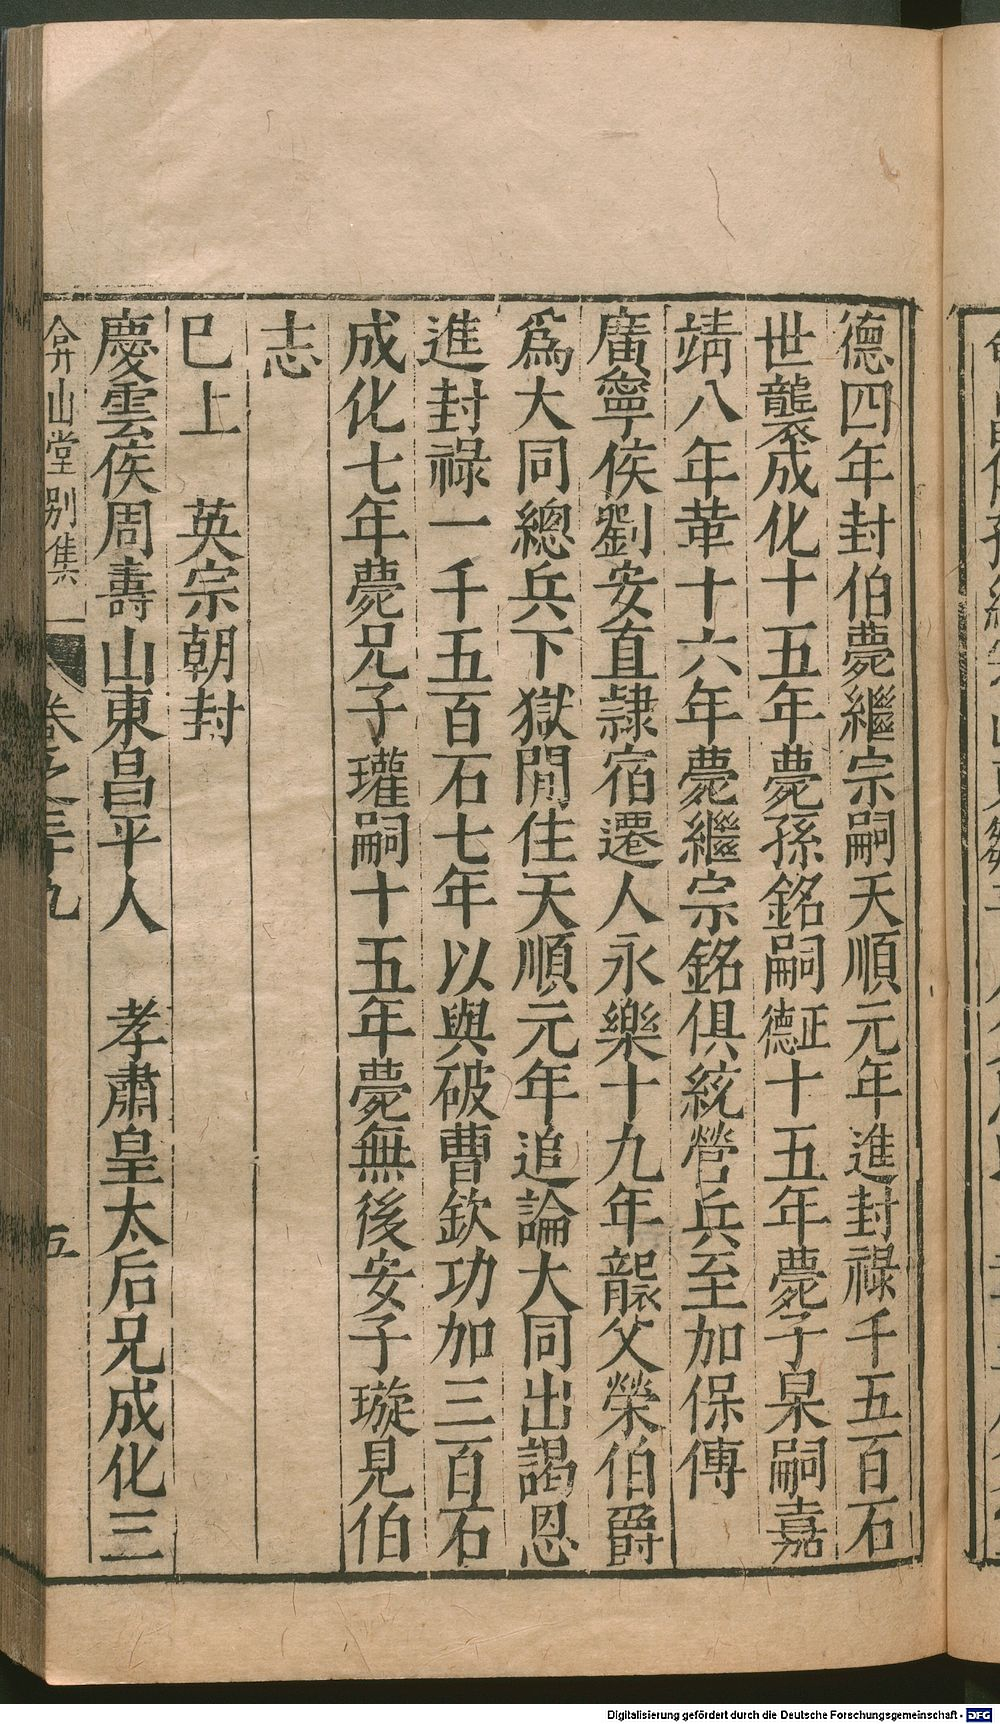 德四年封伯薨繼宗嗣天順元年進封祿千五百石
世襲成化十五年薨孫銘嗣正德十五年薨子杲嗣嘉
靖八年革十六年薨繼宗銘俱統營兵至加保傅
廣寧侯劉安直隷宿遷人永樂十九年襲父榮伯爵
爲大同總兵下獄閒住天順元年追論大同出謁恩
進封祿一千五百石七年以與破曹欽功加三百石
成化七年薨兄子瓘嗣十五年薨無後安子璇見伯
志
巳上　英宗朝封
慶雲侯周壽山東昌平人　孝肅皇太后兄成化三
弇山堂別集
卷之三十九
五
Digitalisierung gefördert durch die Deutsche Forschungsgemeinschaft - DFG